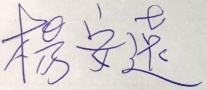 楊安遠